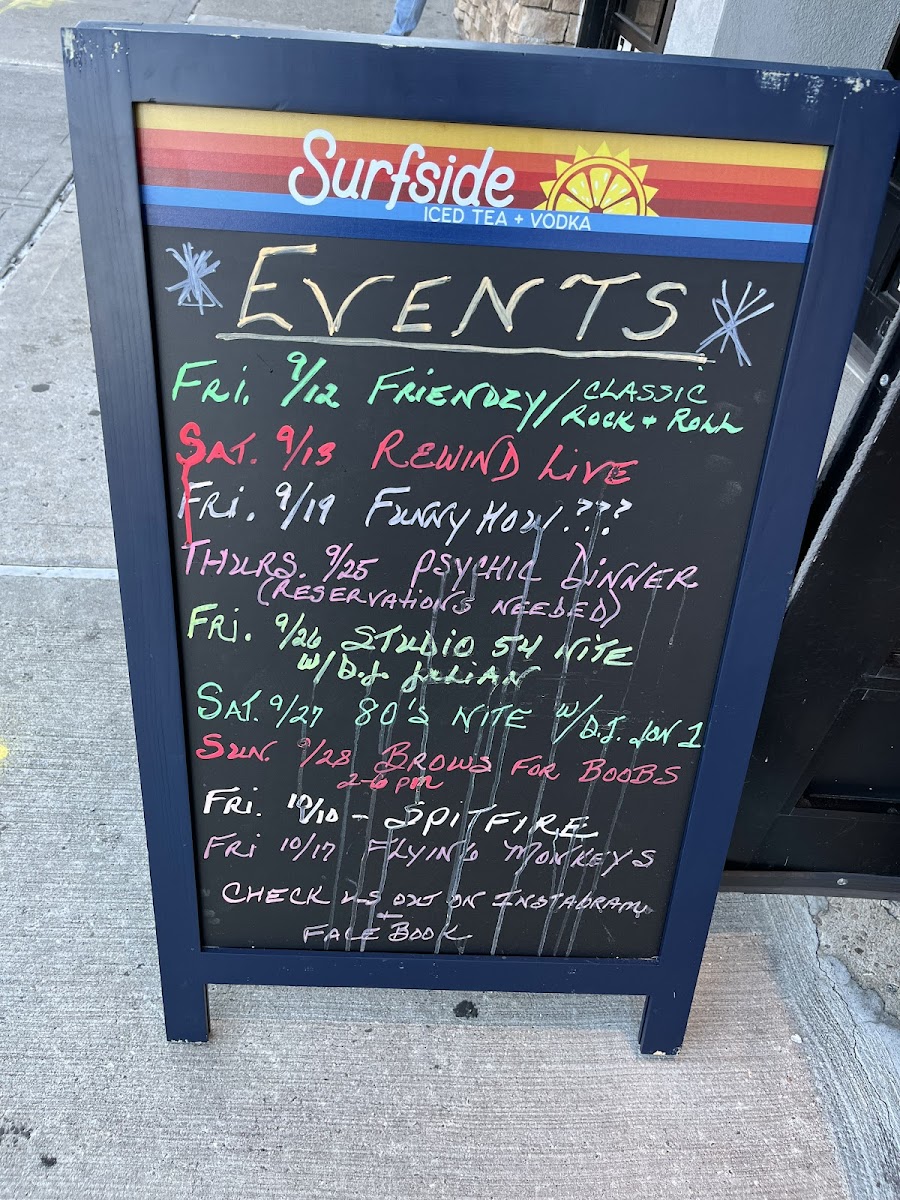 Surfside
ICED TEA + VODKA
EVENTS
FRI. 9/12 FRIENDZY/CLASSIC ROCK + ROLL
SAT. 9/13 REWIND LIVE
FRI. 9/19 FUNNY HOW.???
THURS. 9/25 PSYCHIC DINNER
(RESERVATIONS NEEDED)
FRI. 9/26 STUDIO 54 NITE
W/D.J. JULIAN
SAT. 9/27 80'S NITE W/D.J. JON 1
SUN. 9/28 BROWS FOR BOOBS
2-6 PM
FRI. 10/10 - SPITFIRE
FRI 10/17 FLYING MONKEYS
CHECK US OUT ON INSTAGRAM
+
FACE BOOK